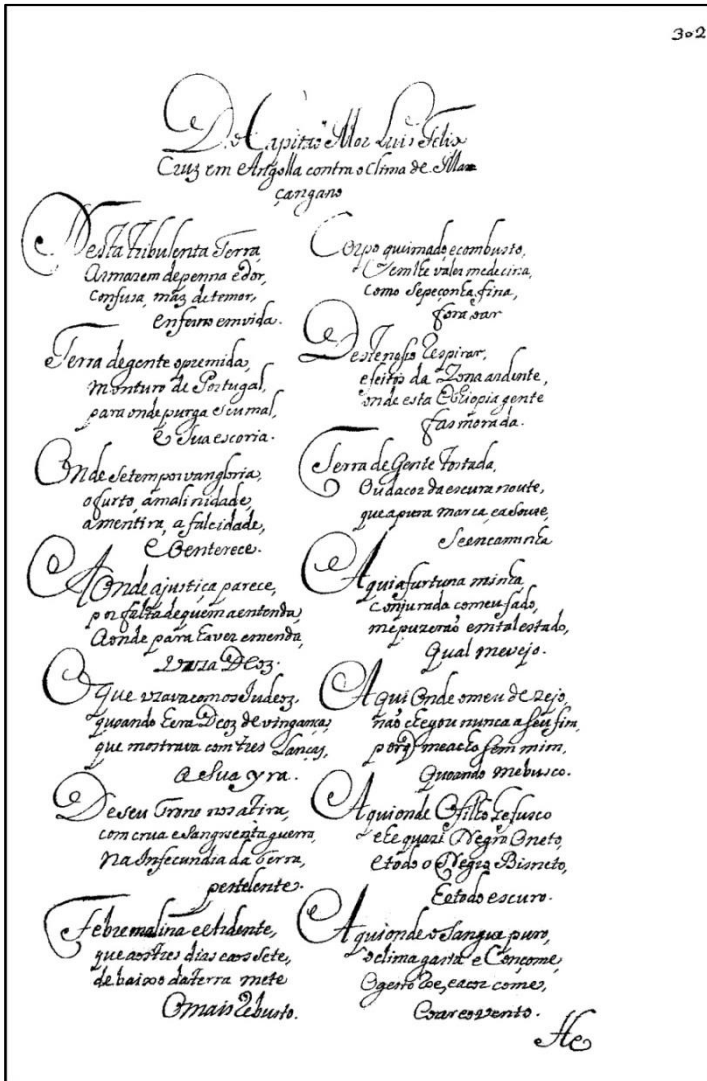 302
Do Capitaõ Mor Luis Felix
Cruz em Angolla contra o Clima de Maᷓ
çangano
Nesta tribulenta Terra,
Armazem de penna e dor,
confusa, maz de temor,
enferno em vida.
Terra de gente opremida,
Monturo de Portugal,
para onde purga seu mal,
E Sua escoria.
Onde se tem por vangloria,
o furto, a malinidade,
a mentira, a falcidade,
E
Aonde a justiça parece,
por falta de quem a entenda,
Aonde para haver emenda,
Deoz.
O que uzava com os Judeoz,
quoando hera Deoz de vingança,
que mostrava com tres lanças,
A Sua yra.
De seu Trono nos atira,
com crua e sangrenta guerra,
Na Infecundia da terra,
pestelente.
Febre malina e ardente,
que aos tres dias e aos sete,
de baixo da terra mete
O mais robusto.
Corpo queimado, e combusto,
sem lhe valer medecina,
como se peçonha fina,
fora o ar
Destenpio Respirar,
efeitos da Zona ardente,
onde esta Ethiopia gente
faz morada.
Terra de Gente Tostada,
Ou da cor da escura noute,
que a pura marca, e a Soute,
Se encaminha
Aqui a furtuna minha,
conjurada com eu fado,
me puzeraõ em tal estado,
Qual me vejo.
Aqui Onde o meu dezejo,
não chegou nunca a seu fim,
porq̃ me acho sem mim,
Quoando me busco.
Aqui onde O filho he fusco
e he quazi Negro O neto,
e todo o Negro Bisneto,
E todo escuro.
Aqui onde o Sangue puro,
o clima gasta e Consome,
O gesto Roe, e a cor come,
O ar e o vento.
He